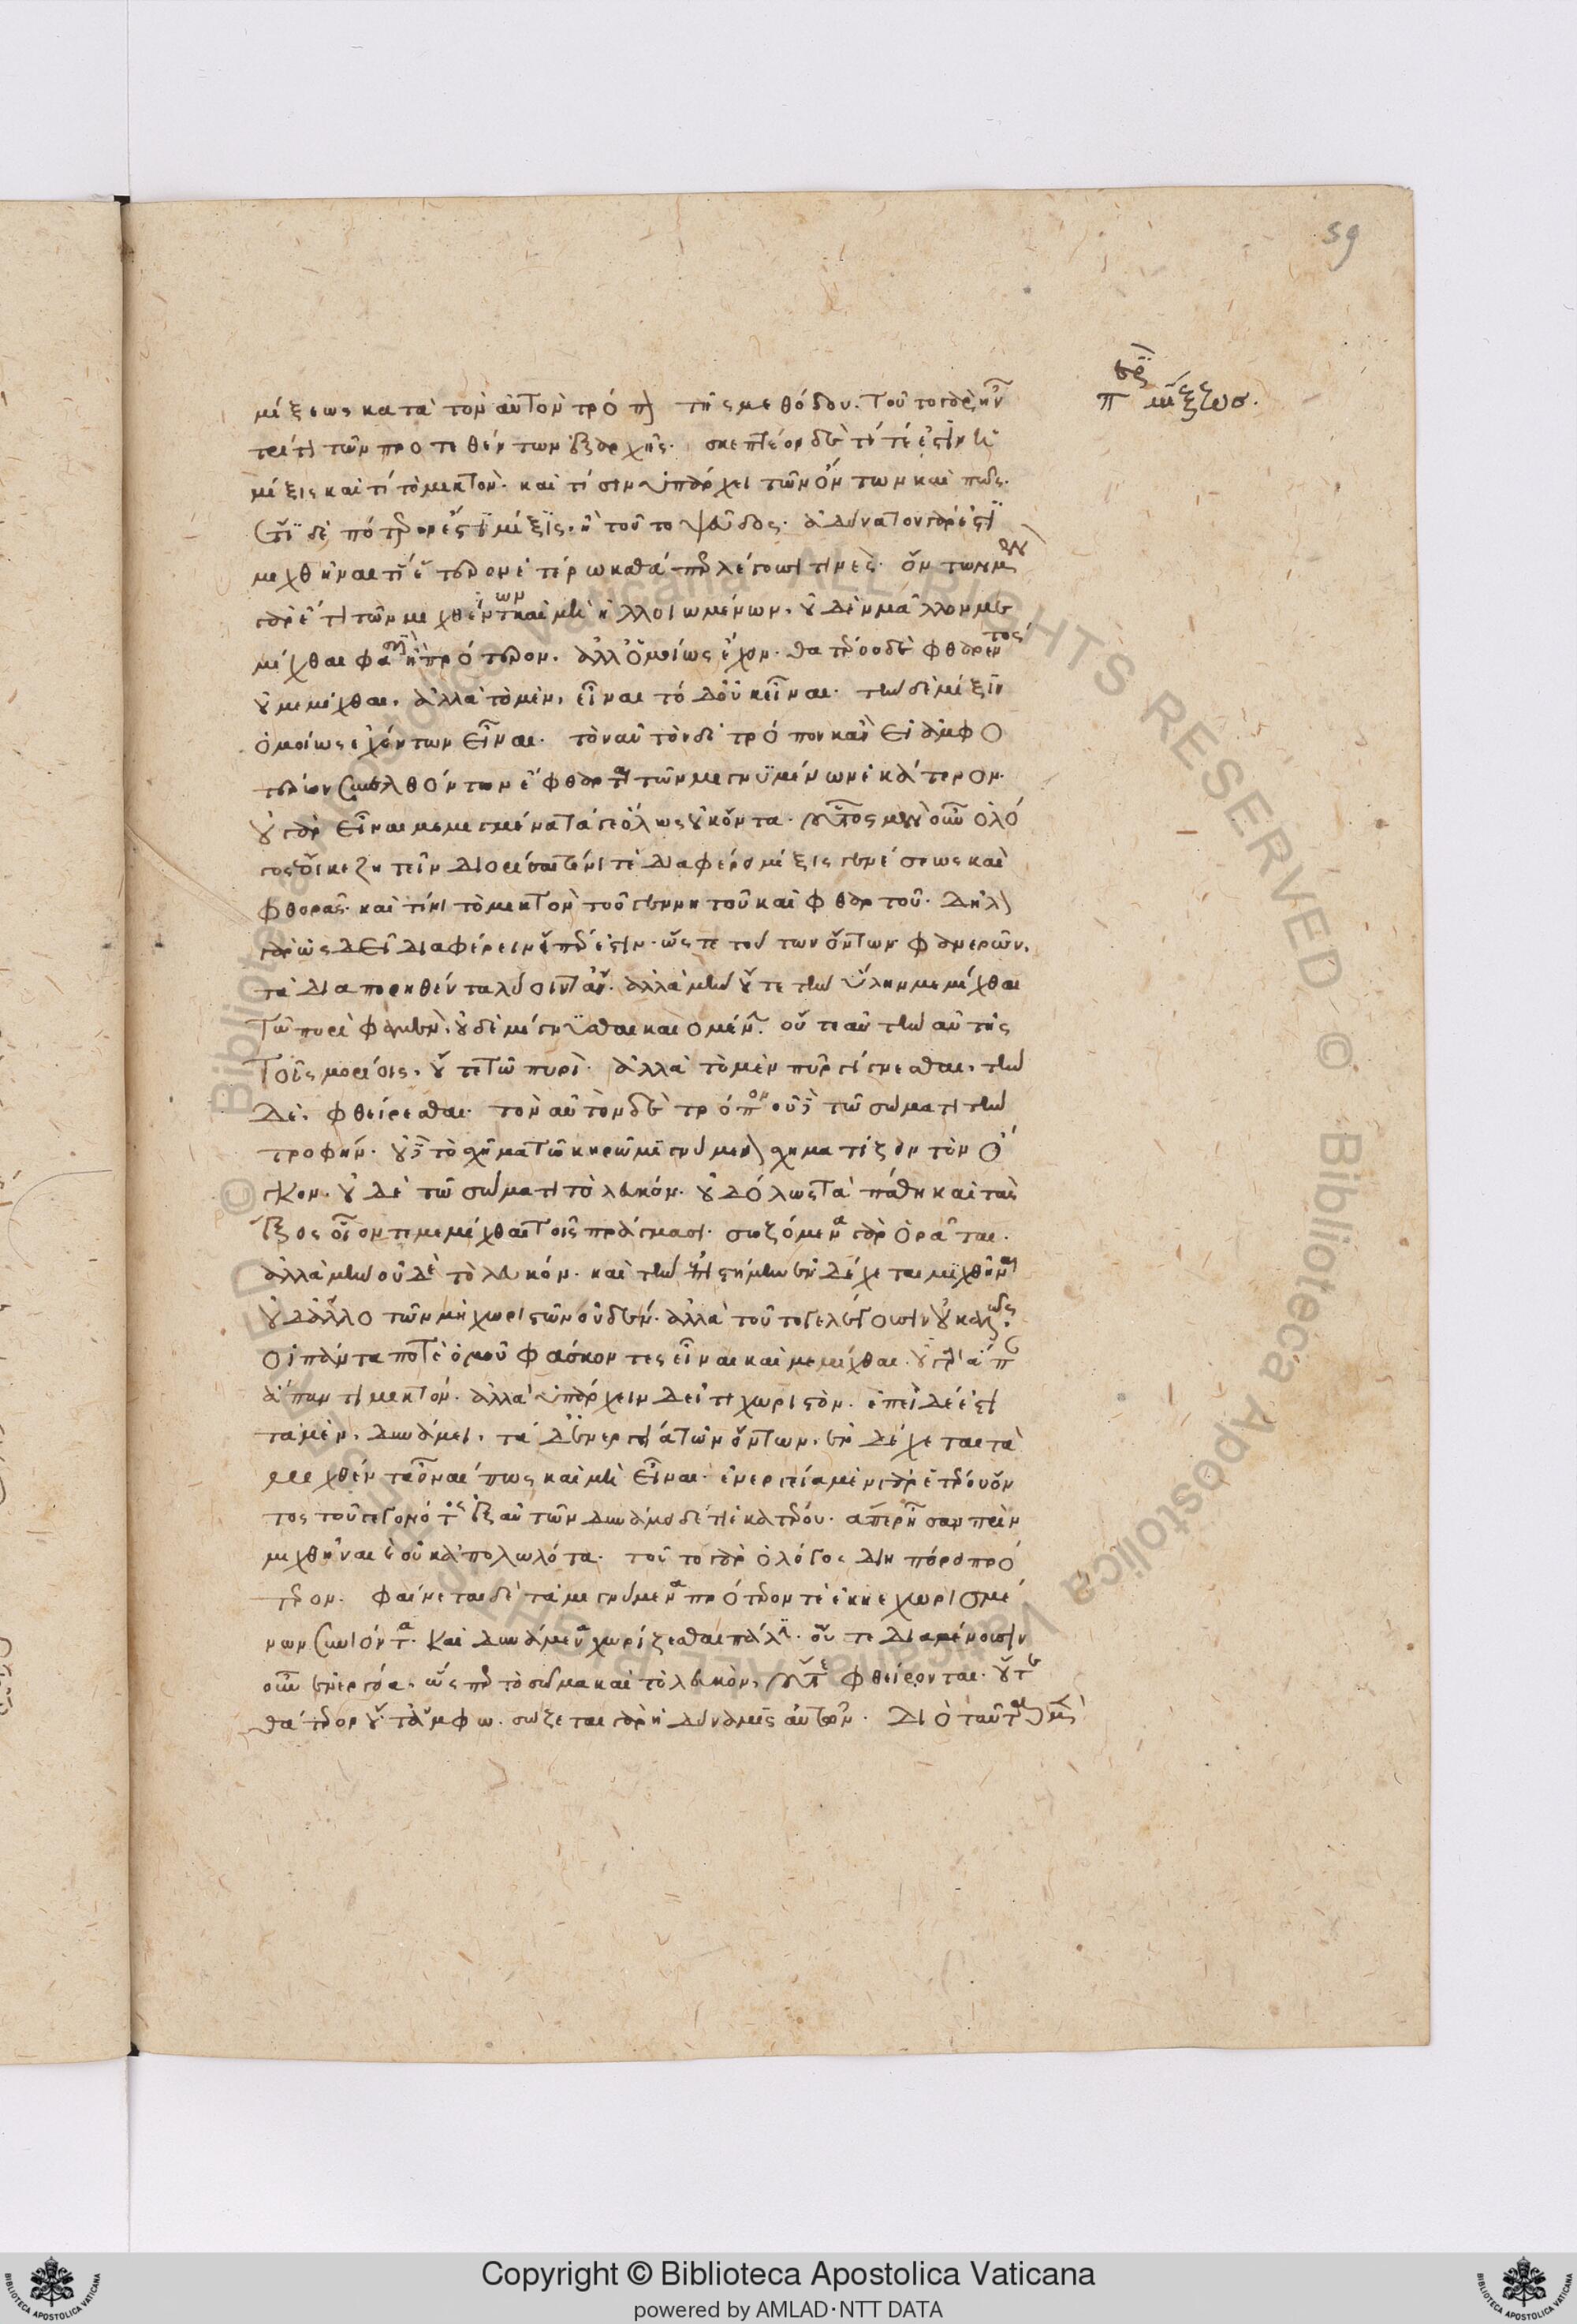 μίξεως κατὰ τὸν αὐτὸν τρόπ(ον) τῆς μεθόδου. τοῦτο γὰρ ἦν
τρίτον τῶν προτεθέντων ἐξ ἀρχῆς. σκεπτέον δὲ τί τέ ἐστιν ἡ
μίξις καὶ τί τὸ μικτὸν. καὶ τίσιν ὑπάρχει τῶν ὄντων καὶ πῶς.
ἔτι δὲ πότερον ἔστι μίξις, ἢ τοῦτο ψεῦδος. ἀδύνατον γάρ ἐστι
μιχθῆναι τὶ ἕτερον ἑτέρω καθάπερ λέγουσι τινὲς. ὄντων μὲν
γὰρ ἔτι τῶν μιχθέντων καὶ μὴ ἠλλοιωμένων, οὐδὲν μᾶλλον με
μίχθαι φασὶν ἢ πρότερον. ἀλλ' ὁμοίως ἔχειν. θατέρου δὲ φθαρέντος
οὐ μεμίχθαι, ἀλλὰ τὸ μὲν, εἶναι τό δ' οὐκ εἶναι. τὴν δὲ μίξιν
ὁμοίως ἐχόντων εἶναι. τὸν αὐτὸν δὲ τρόπον κἂν εἰ ἀμφο
τέρων συνελθόντων ἔφθαρται τῶν μιγνυμένων ἑκάτερον.
οὐ γὰρ εἶναι μεμιγμένα τά γε ὅλως οὐκ ὄντα. οὗτος μὲν οὖν ὁ λό
γος ἔοικε ζητεῖν διορίσαι τίνι τὲ διαφέρει μίξις γενέσεως καὶ
φθορᾶς. καὶ τίνι τὸ μικτὸν τοῦ γεννητοῦ καὶ φθαρτοῦ. δῆλ(ον)
γὰρ ὡς δεῖ διαφέρειν εἴπερ ἔστιν. ὥστε τούτων ὄντων φανερῶν,
τὰ διαπορηθέντα λύοιντ' ἄν. ἀλλὰ μὴν οὔτε τὴν ὕλην μεμίχθαι
τῶ πυρί φαμεν, οὐδὲ μίγνυσθαι καιομέν(ην). οὔτε αὐτὴν αὑτῆς
τοῖς μορίοις, οὔτε τῶ πυρί. ἀλλὰ τὸ μὲν πῦρ γίγνεσθαι, τὴν
δὲ, φθείρεσθαι. τὸν αὐτὸν δὲ τρόπον οὔτε τῶ σώματι τὴν
τροφήν. οὔτε τὸ σχῆμα τῶ κηρῶ μιγνύμεν(ον) σχηματίζειν τὸν ὄ
γκον. οὐδὲ τῶ σώματι τὸ λευκόν. οὐδ' ὅλως τὰ πάθη καὶ τὰς
ἕξεις οἷόν τε μεμίχθαι τοῖς πράγμασι. σωζόμενα γὰρ ὁρᾶται.
ἀλλὰ μὴν οὐδὲ τὸ λευκόν. καὶ τὴν ἐπιστήμην ἐνδέχεται μιχθῆναι
οὐδ' ἄλλο τῶν μὴ χωριστῶν οὐδέν. ἀλλὰ τοῦτο λέγουσιν οὐ καλῶς.
οἱ πάντα ποτὲ ὁμοῦ φάσκοντες εἶναι καὶ μεμίχθαι. οὐ γὰρ ἅπαν
ἅπαντι μικτόν. ἀλλὰ ὑπάρχειν δεῖ τι χωριστὸν. ἐπεὶ δέ ἐστι
τὰ μὲν, δυνάμει, τὰ δ' ἐνεργεία τῶν ὄντων, ἐνδέχεται τὰ
μιχθέντα εἶναί πως καὶ μὴ εἶναι. ἐνεργεία μὲν γὰρ ἑτέρου ὄν
τος τοῦ γεγονότος ἐξ αὐτῶν δυνάμει δέ τι ἑκατέρου. ἅπερ ἦσαν πρὶν
μιχθῆναι καὶ οὐκ ἀπολωλότα. τοῦτο γὰρ ὁ λόγος διηπόρει πρό
τερον. φαίνεται δὲ τὰ μιγνύμενα πρότερον τὲ ἐκ κεχωρισμέ
νων συνιόντα. καὶ δυνάμενα χωρίζεσθαι πάλιν. οὔτε διαμένουσιν
οὖν ἐνεργεία, ὥσπερ τὸ σῶμα καὶ τὸ λευκόν, οὔτε φθείρονται. οὔτε
θάτερον οὔτ' ἄμφω. σώζεται γὰρ ἡ δύναμις αὐτῶν. διὸ ταῦτα μὲν